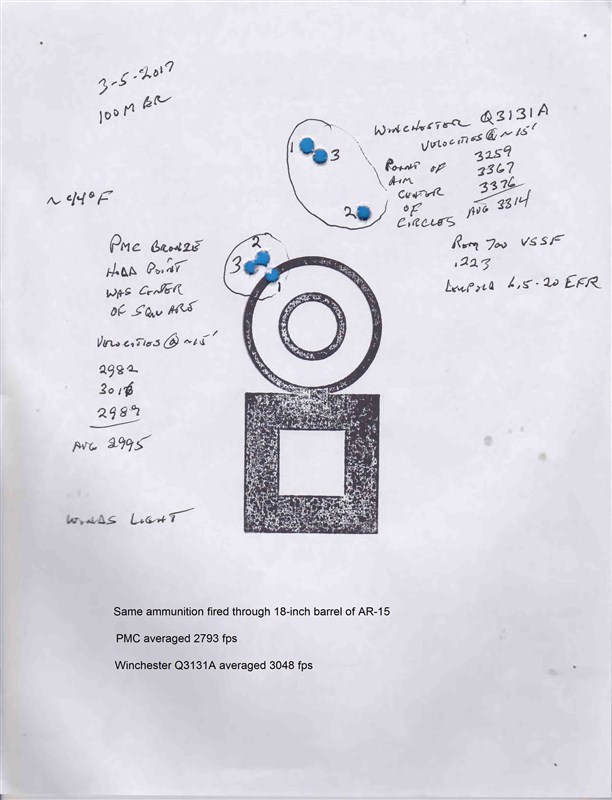 3-5-2017
100 METER
~ 44°F
1 3
2
WINCHESTER Q3131A
VELOCITIES @ ~15'
POINT OF
AIM
CENTER
OF
CIRCLES
3259
3367
3316
AVG 3314
REM 700 VSSF
.223
LEUPOLD 6.5-20 EFR
2
3
1
PMC BRONZE
HOLD POINT
WAS CENTER
OF SQUARE
VELOCITIES @ ~15'
2982
3016
2989
AVG 2995
WINDS LIGHT
Same ammunition fired through 18-inch barrel of AR-15
PMC averaged 2793 fps
Winchester Q3131A averaged 3048 fps